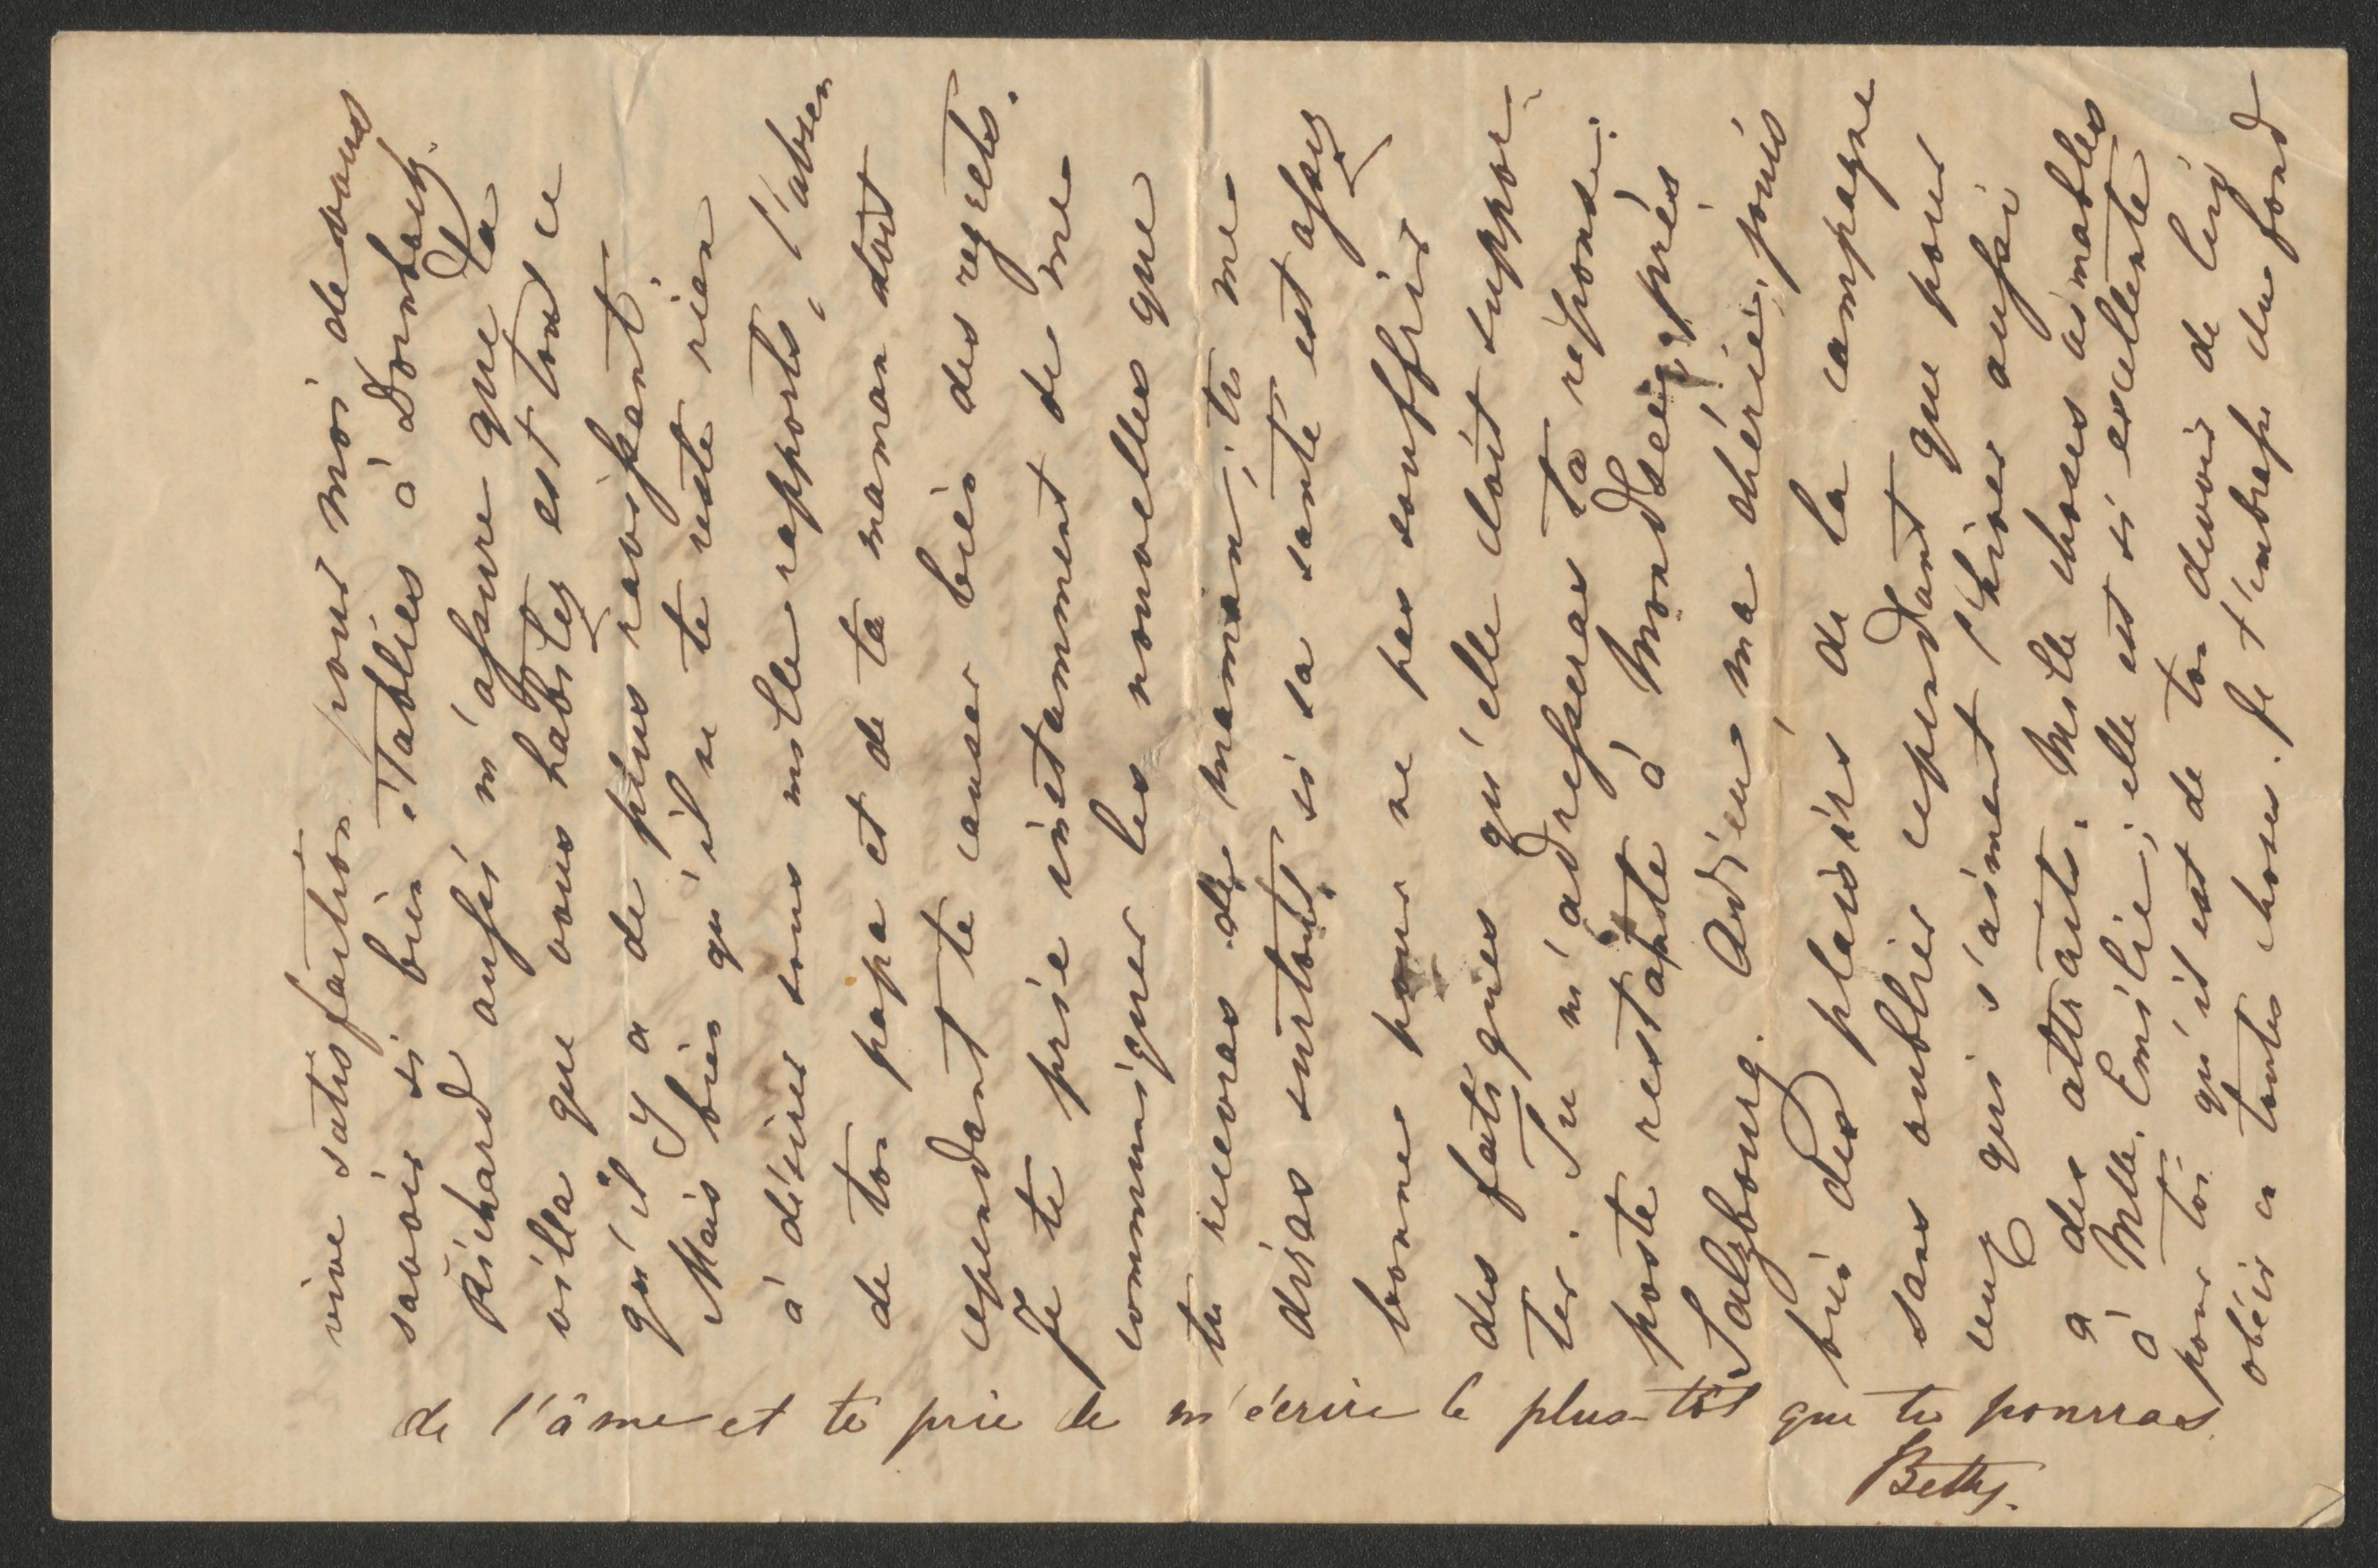 vive satisfaction pour moi de vous
savoir si bien établies à Dornbach.
Richard aussi m'assure que la
villa que vous habitez est tout ce
qu'il y a de plus ravissant.
Mais bien qu'il ne te reste rien
à désirer sous mille rapports, l'absen
de ton papa et de ta maman doit
cependant te causer bien des regrets.
Je te prie instamment de me
communiquer les nouvelles que
tu recevras de maman; tu me
diras surtout si sa santé est assez
bonne pour ne pas souffrir
des fatigues qu'elle doit suppor-
ter. Tu m'adresseras ta réponse:
poste restante à Mondsee, près
Salzbourg. Adieu ma chérie, jouis
bien des plaisirs de la campagne
sans oublier cependant que pour
ceux qui s'aiment l'hiver aussi
a des attraits. Mille choses aimables
à Mlle. Emilie; elle est si excellente
pour toi qu'il est de ton devoir de lui
obéir en toutes choses. Je t'embrasse du fond
de l'âme et te prie de m'écrire le plus-tôt que tu pourras
Betty.